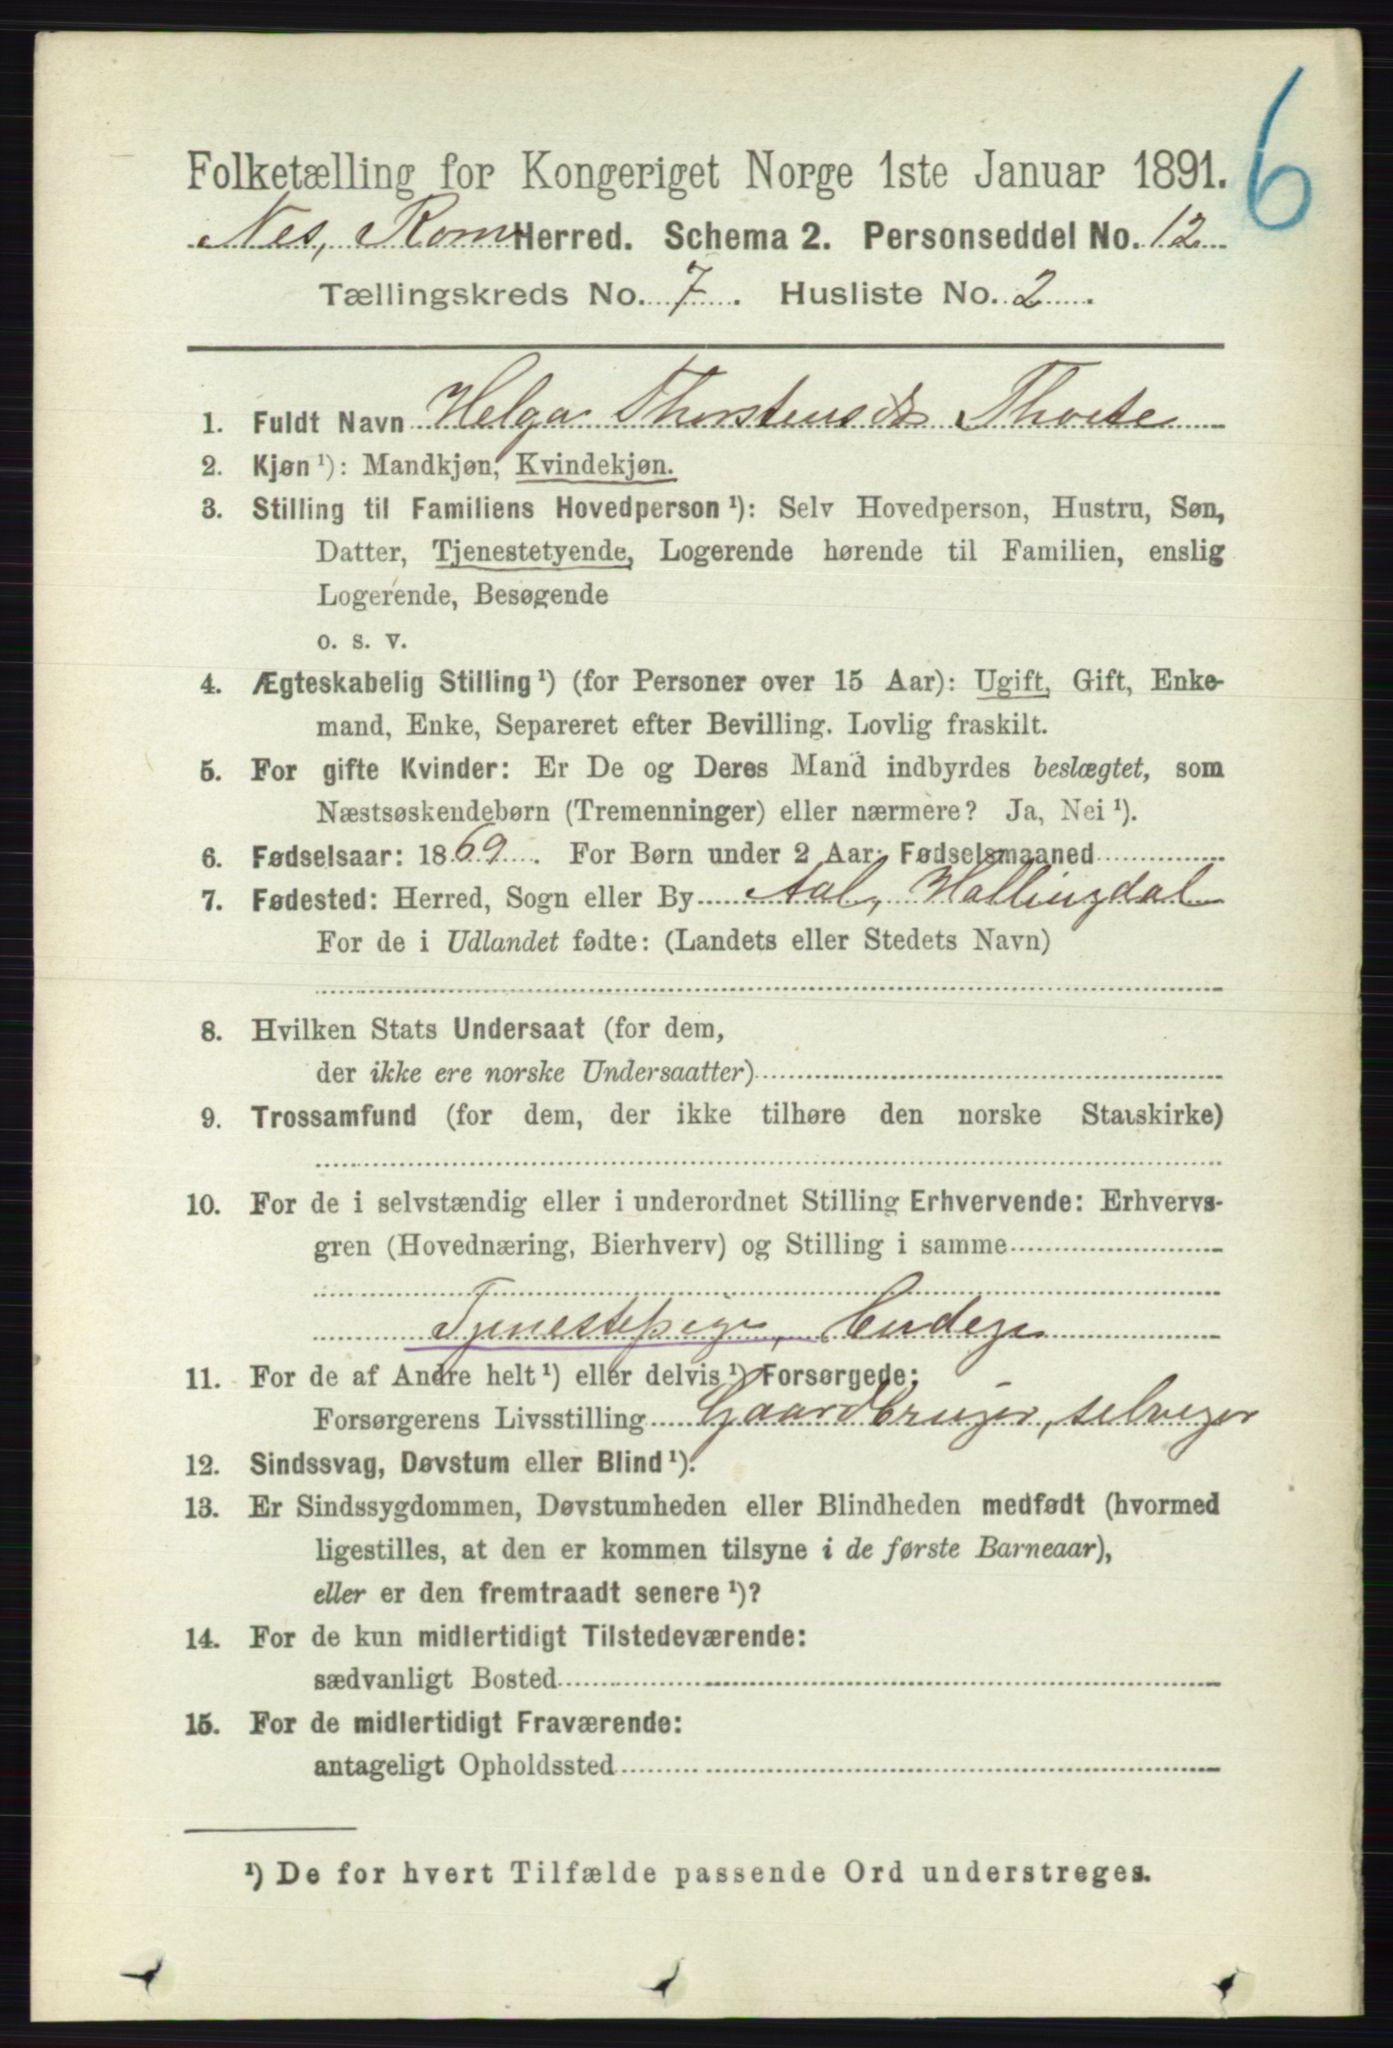 6
Folketælling for Kongeriget Norge 1ste Januar 1891.
Nes, Rom Herred. Schema 2. Personseddel No. 12
Tællingskreds No. 7. Husliste No. 2.
1. Fuldt Navn Helga Thorstensdr Thoete
2. Kjøn ¹): Mandkjøn, Kvindekjøn.
3. Stilling til Familiens Hovedperson ¹): Selv Hovedperson, Hustru, Søn,
Datter, Tjenestetyende, Logerende hørende til Familien, enslig
Logerende, Besøgende
o. s. v.
4. Ægteskabelig Stilling ¹) (for Personer over 15 Aar): Ugift, Gift, Enke-
mand, Enke, Separeret efter Bevilling. Lovlig fraskilt.
5. For gifte Kvinder: Er De og Deres Mand indbyrdes beslægtet, som
Næstsøskendebørn (Tremenninger) eller nærmere? Ja, Nei ¹).
6. Fødselsaar: 1869. For Børn under 2 Aar: Fødselsmaaned
7. Fødested: Herred, Sogn eller By Aal, Hallingdal
For de i Udlandet fødte: (Landets eller Stedets Navn)
8. Hvilken Stats Undersaat (for dem,
der ikke ere norske Undersaatter)
9. Trossamfund (for dem, der ikke tilhøre den norske Statskirke)
10. For de i selvstændig eller i underordnet Stilling Erhvervende: Erhvervs-
gren (Hovednæring, Bierhverv) og Stilling i samme
Tjenestepige,
11. For de af Andre helt ¹) eller delvis ¹) Forsørgede:
Forsørgerens Livsstilling Gaardbruger, selveger
12. Sindssvag, Døvstum eller Blind ¹).
13. Er Sindssygdommen, Døvstumheden eller Blindheden medfødt (hvormed
ligestilles, at den er kommen tilsyne i de første Barneaar),
eller er den fremtraadt senere ¹)?
14. For de kun midlertidigt Tilstedeværende:
sædvanligt Bosted
15. For de midlertidigt Fraværende:
antageligt Opholdssted
¹) De for hvert Tilfælde passende Ord understreges.